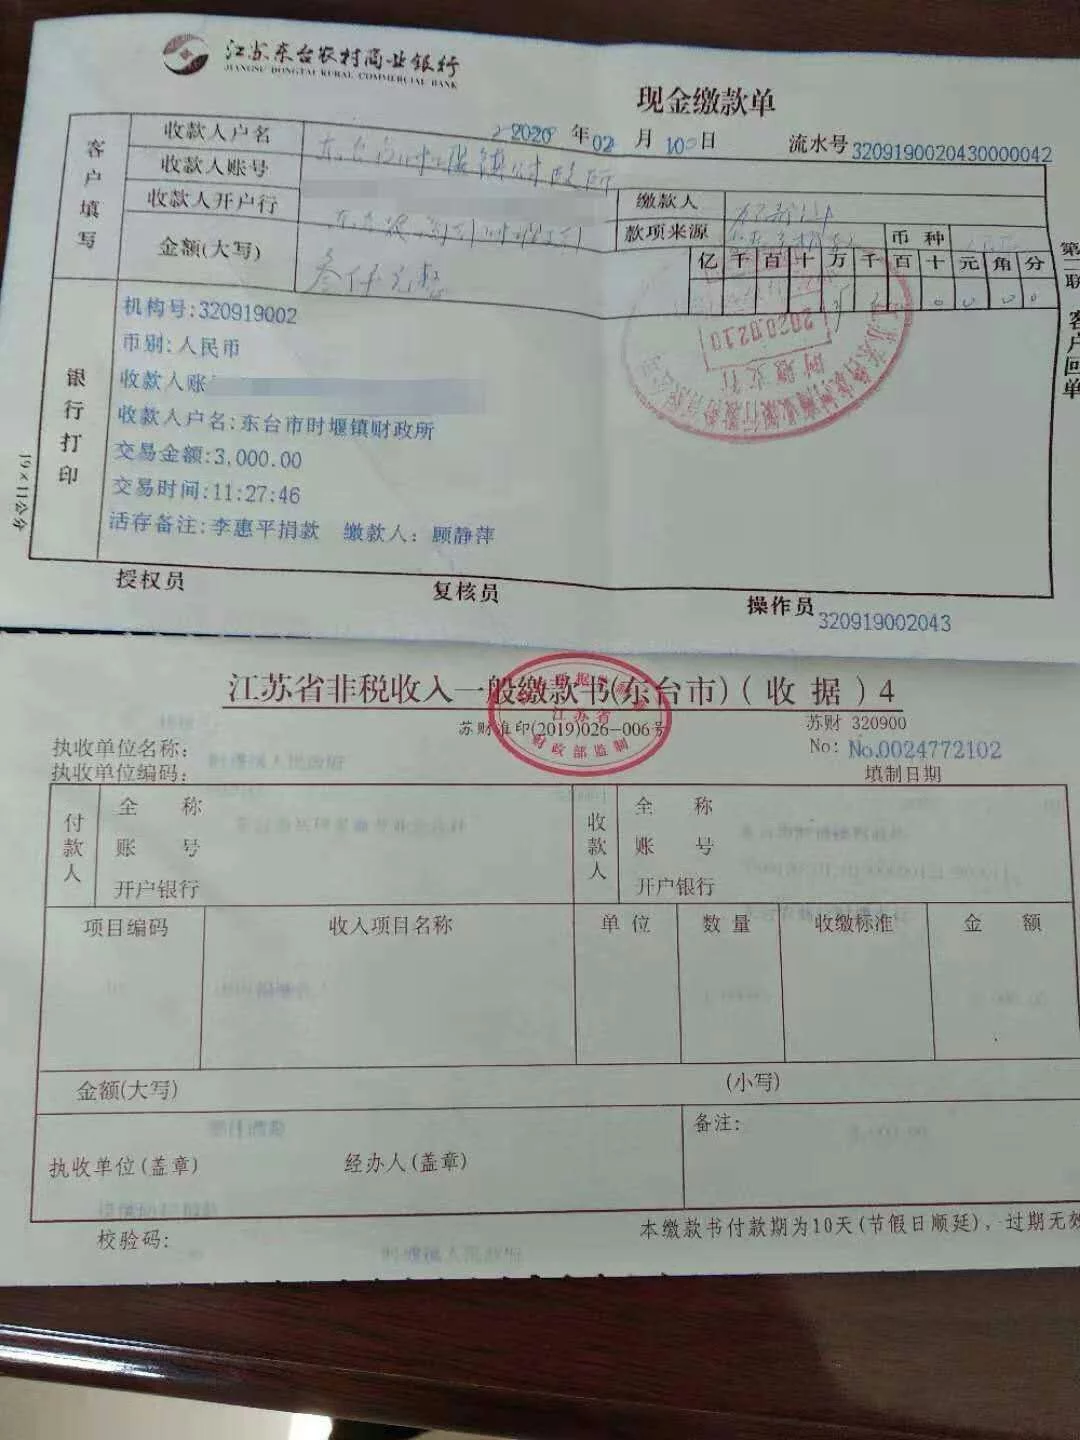 江苏东台农村商业银行
JIANGSU DONGTAI RURAL COMMERCIAL BANK
现金缴款单
2020 年 02 月 10 日 流水号 3209190020430000042
客户填写
收款人户名
收款人账号
收款人开户行
缴款人
款项来源
币种
金额(大写) 叁仟元整
亿 千 百 十 万 千 百 十 元 角 分
第二联 客户回单
银行打印
机构号:320919002
币别:人民币
收款人账
收款人户名:东台市时堰镇财政所
交易金额:3,000.00
交易时间:11:27:46
活存备注:李惠平捐款 缴款人:顾静萍
2020.02.10
19×11公分
授权员 复核员 操作员 320919002043
江苏省非税收入一般缴款书(东台市)(收据)4
江苏省
财政部监制
苏财准印(2019)026-006号
苏财 320900
执收单位名称:
No: No.0024772102
执收单位编码:
填制日期
付款人
全称
账号
开户银行
收款人
全称
账号
开户银行
项目编码 收入项目名称 单位 数量 收缴标准 金额
金额(大写) (小写)
执收单位(盖章) 经办人(盖章) 备注:
校验码:
本缴款书付款期为10天(节假日顺延),过期无效